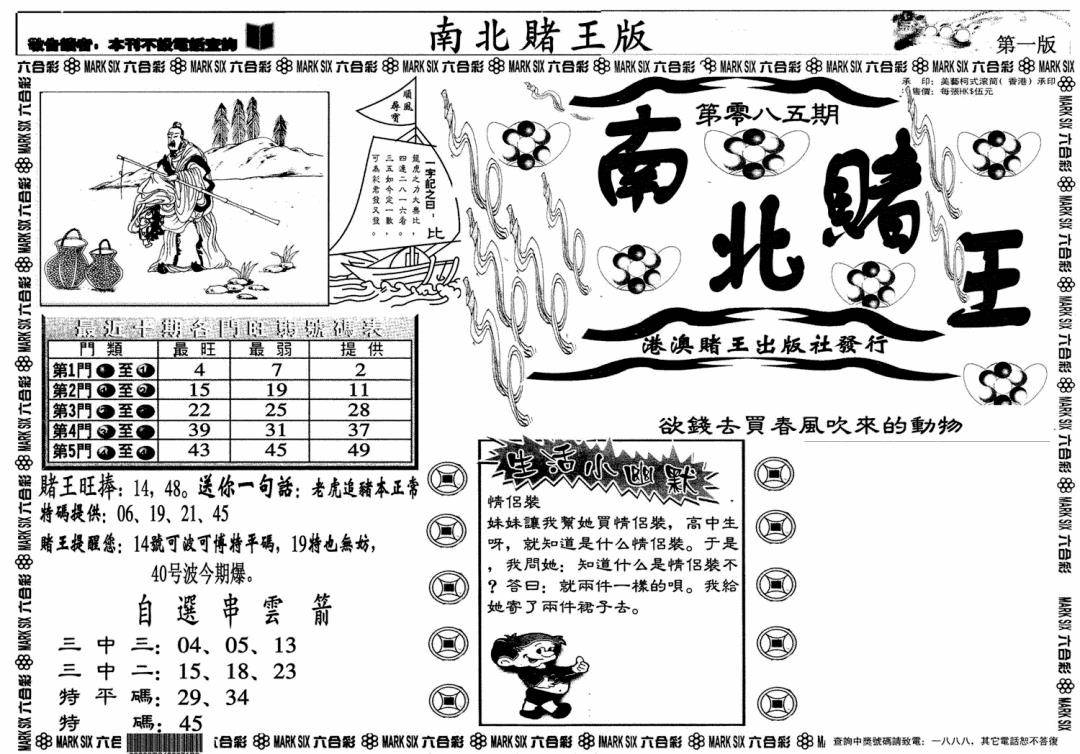 敬告讀者：本刊不設電話查詢
南北賭王版
第一版
六合彩 MARK SIX 六合彩 MARK SIX 六合彩 MARK SIX 六合彩 MARK SIX 六合彩 MARK SIX 六合彩 MARK SIX 六合彩 MARK SIX 六合彩 MARK SIX 六合彩 MARK SIX 六合彩 MARK SIX
承 印：美藝柯式滾筒(香港)承印
售價：每張HK$伍元
順風
尋寶
一字記之曰：比
龍虎之力大無比，
四邊二八一六看。
三五如今定一數，
可為彩君發又發。
第零八五期
南北賭王
港澳賭王出版社發行
欲錢去買春風吹來的動物
最近十期各門旺弱號碼表
門類 最旺 最弱 提供
第1門 至 4 7 2
第2門 至 15 19 11
第3門 至 22 25 28
第4門 至 39 31 37
第5門 至 43 45 49
賭王旺捧：14，48。送你一句話：老虎追豬本正常
特碼提供：06、19、21、45
賭王提醒您：14號可波可博特平碼，19特也無妨，
40号波今期爆。
自選串雲箭
三中三：04、05、13
三中二：15、18、23
特平碼：29、34
特 碼：45
生活小幽默
情侶裝
妹妹讓我幫她買情侶裝，高中生
呀，就知道是什么情侶裝。于是
，我問她：知道什么是情侶裝不
？答曰：就兩件一樣的唄。我給
她寄了兩件裙子去。
MARK SIX 六合彩 MARK SIX 六合彩 MARK SIX 六合彩 MARK SIX 六合彩 MARK SIX 六合彩 MARK SIX 六合彩
查詢中獎號碼請致電：一八八八，其它電話恕不答復